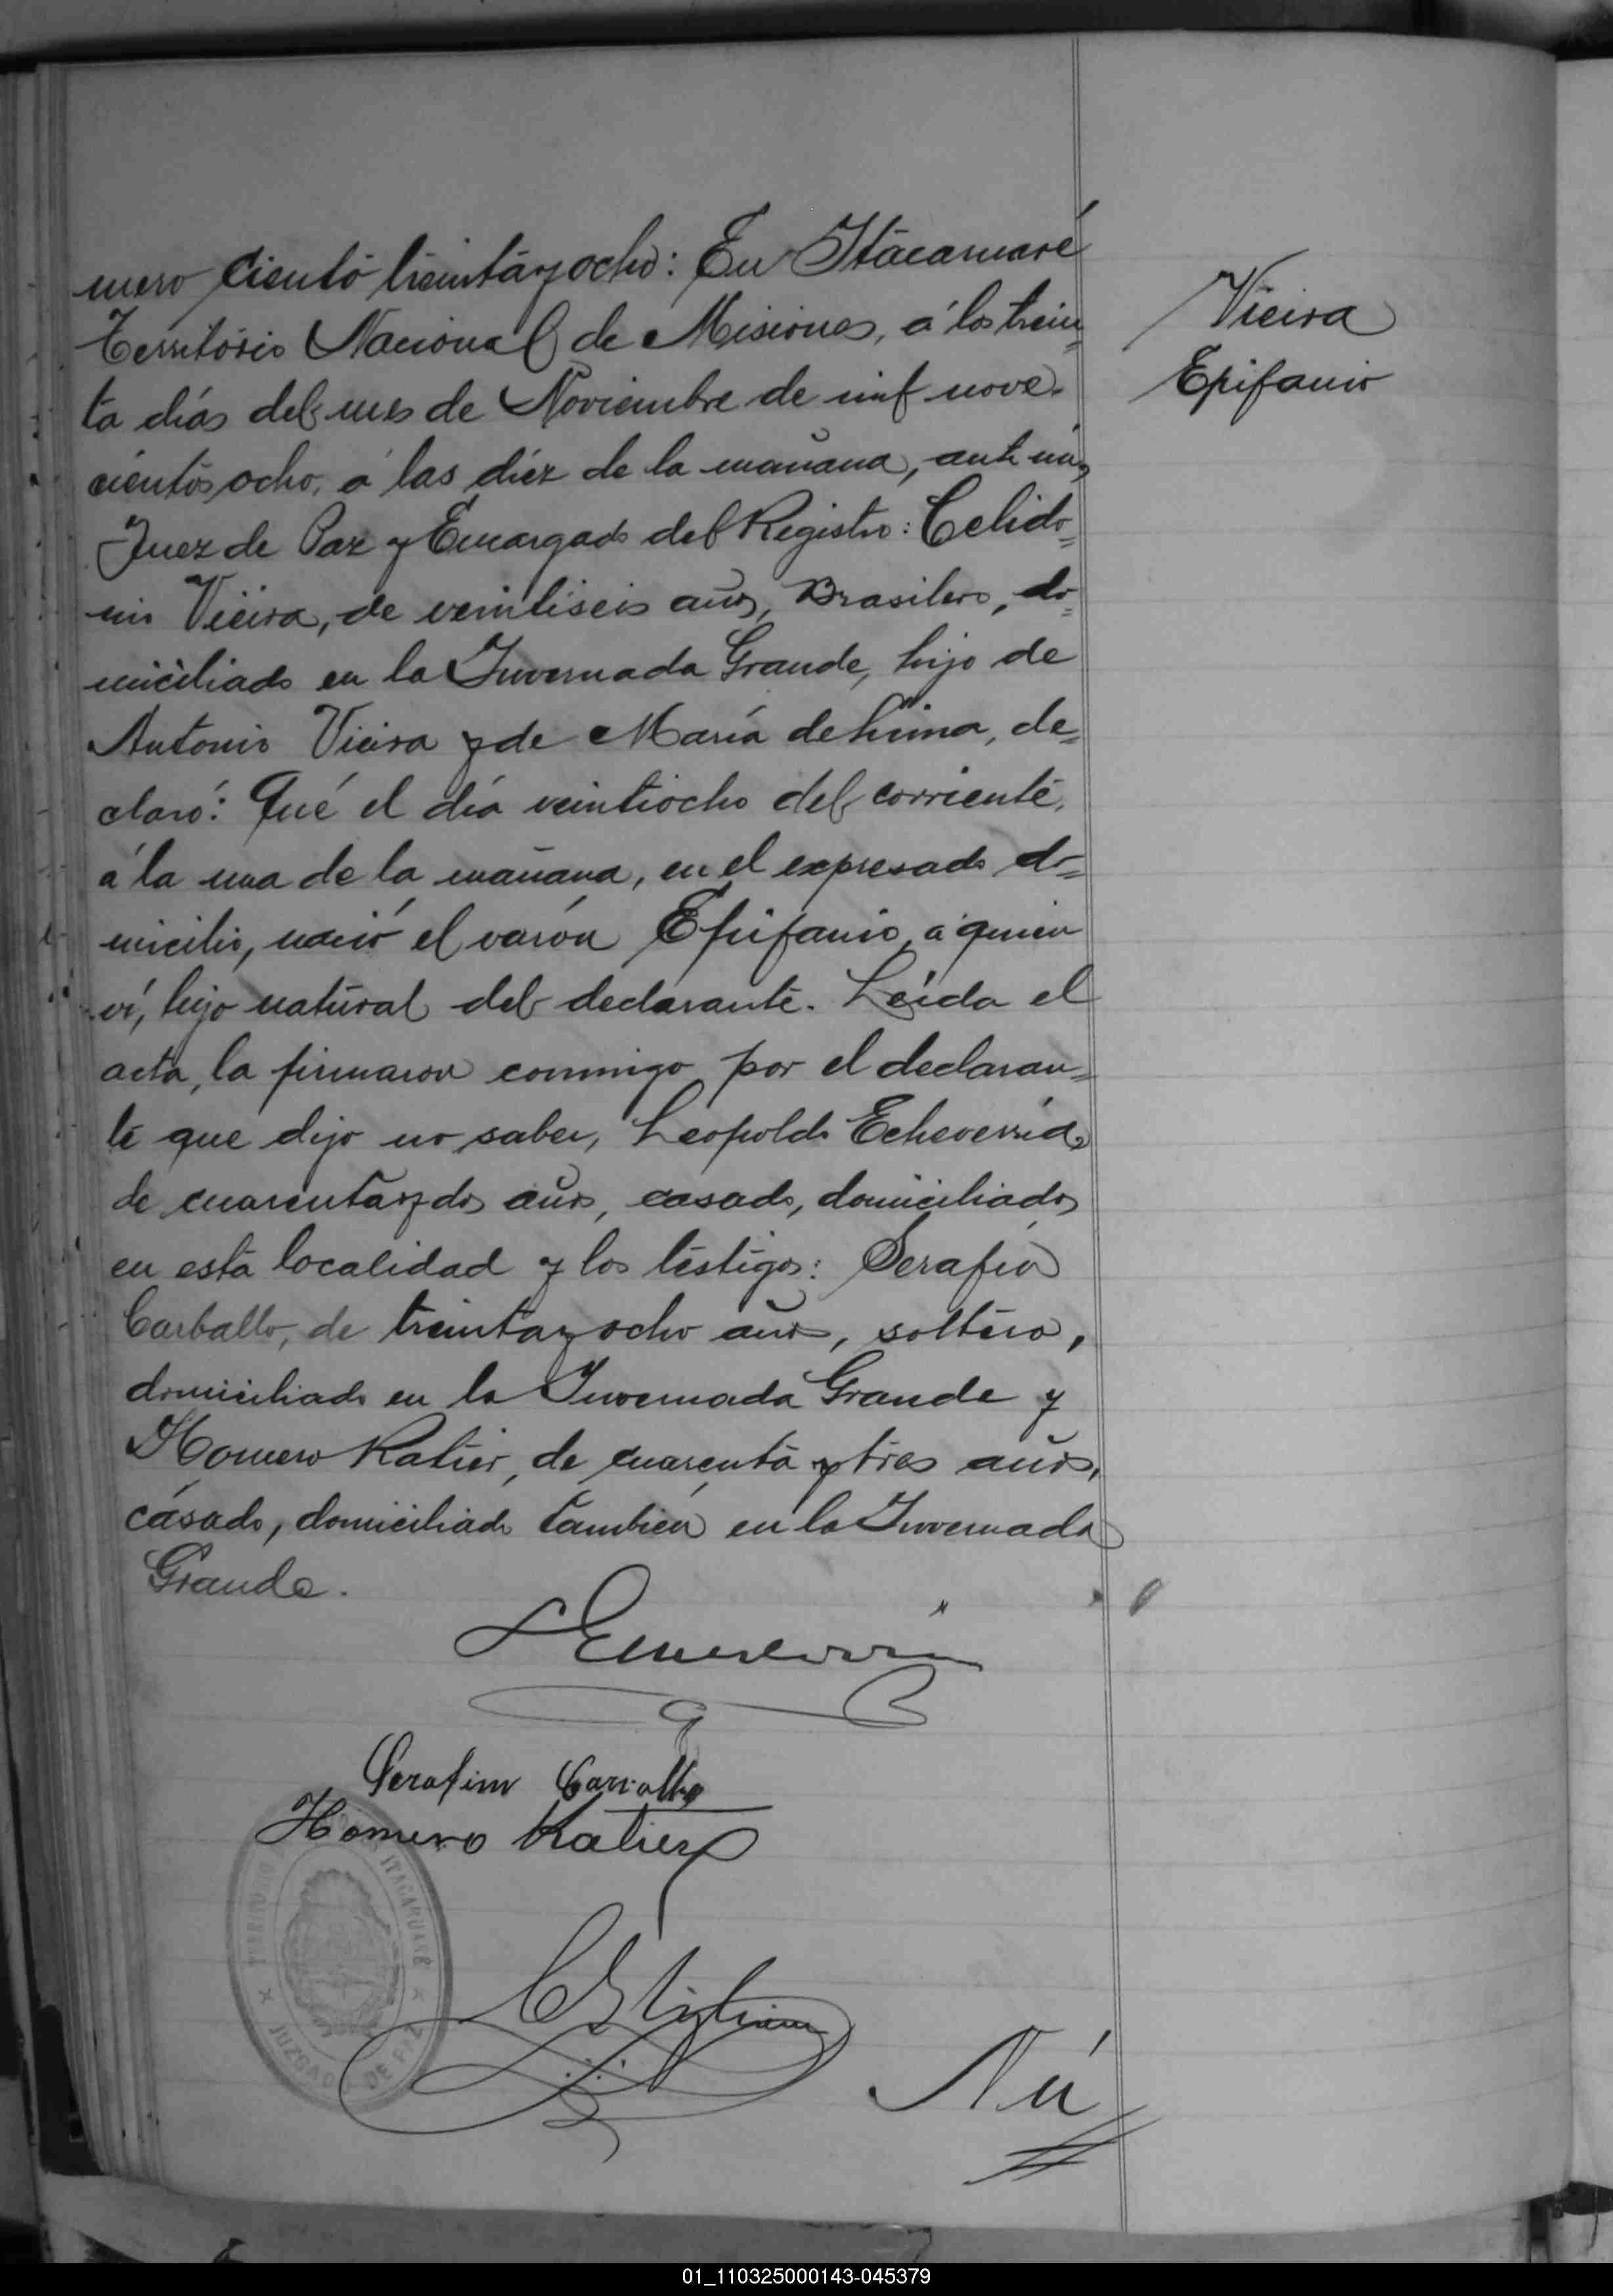 mero ciento treinta y ocho: En Itacaruaré
Territorio Nacional de Misiones, á los trein=
ta días del mes de Noviembre de mil nove-
cientos ocho, á las diéz de la mañana, ante mí,
Juez de Paz y Encargado del Registro: Celido=
nio Vieira, de veintiseis años, Brasilero, do=
miciliado en la Invernada Grande, hijo de
Antonio Vieira y de María de Lima, de=
claró: Qué el día veintiocho del corriente,
á la una de la mañana, en el expresado do=
micilio, nació el varón Epifanio, a quien
ví, hijo natural del declarante. Leída el
acta, la firmaron conmigo por el declaran=
te que dijo no saber, Leopoldo Echeverría,
de cuarenta y dos años, casado, domiciliado
en esta localidad y los testigos: Serafín
Carballo, de treinta y ocho años, soltero,
domiciliado en la Invernada Grande y
Homero Katier, de cuarenta y tres años,
casado, domiciliado también en la Invernada
Grande.
Vieira
Epifanio
L Echeverría
Serafim Carvalho
Homero Katier
TERRITORIO
ITACARUARÉ
JUZGADO DE PAZ
Nú
01_110325000143-045379